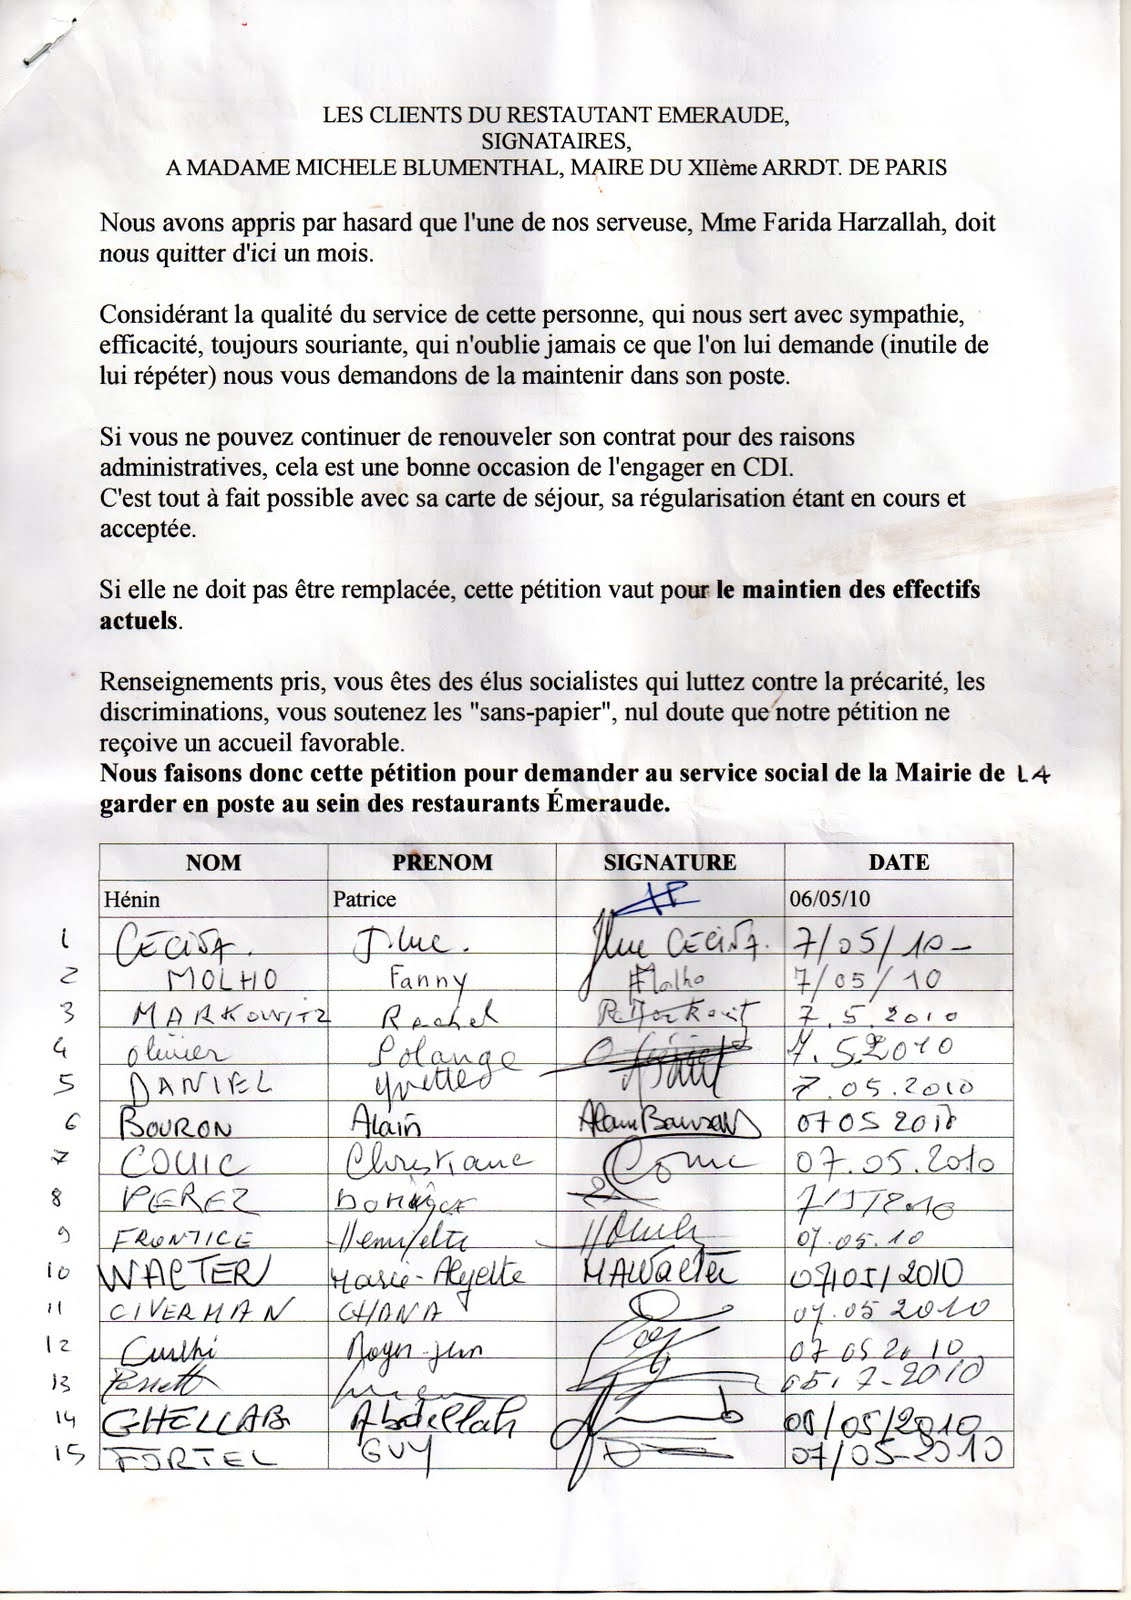 LES CLIENTS DU RESTAUTANT EMERAUDE,
SIGNATAIRES,
A MADAME MICHELE BLUMENTHAL, MAIRE DU XIIème ARRDT. DE PARIS
Nous avons appris par hasard que l'une de nos serveuse, Mme Farida Harzallah, doit
nous quitter d'ici un mois.
Considérant la qualité du service de cette personne, qui nous sert avec sympathie,
efficacité, toujours souriante, qui n'oublie jamais ce que l'on lui demande (inutile de
lui répéter) nous vous demandons de la maintenir dans son poste.
Si vous ne pouvez continuer de renouveler son contrat pour des raisons
administratives, cela est une bonne occasion de l'engager en CDI.
C'est tout à fait possible avec sa carte de séjour, sa régularisation étant en cours et
acceptée.
Si elle ne doit pas être remplacée, cette pétition vaut pour le maintien des effectifs
actuels.
Renseignements pris, vous êtes des élus socialistes qui luttez contre la précarité, les
discriminations, vous soutenez les "sans-papier", nul doute que notre pétition ne
reçoive un accueil favorable.
Nous faisons donc cette pétition pour demander au service social de la Mairie de LA
garder en poste au sein des restaurants Émeraude.
NOM PRENOM SIGNATURE DATE
Hénin Patrice 06/05/10
1 CECINA. JLuc. JLuc CECINA. 7/05/10-
2 MOLHO Fanny FMolho 7/05/10
3 MARKOWITZ Rachel 7.5.2010
4 olivier Solange 7.5.2010
5 DANIEL Yvette 7.05.2010
6 BOURON Alain Alain Bouron 07 05 2010
7 COUIC Christiane Couic 07.05.2010
8 PEREZ
9 FRONTICE Henriette 07.05.10
10 WALTER Marie-Alyette MAWalter 07/05/2010
11 CIVERMAN GHANA 07.05 2010
12 Roger-jean 07 05 20 10
13 05.7-2010
14 GHELLAB Abdellah 05/2010
15 FORTEL GUY 07/05-2010